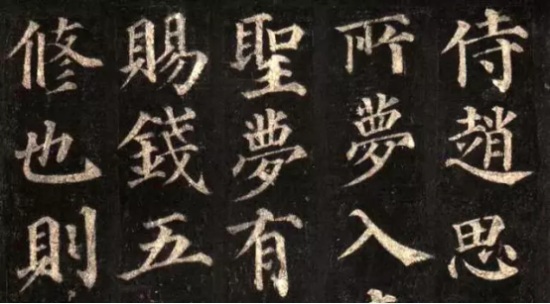 侍趙思
所夢入
聖夢有
賜錢五
修也則